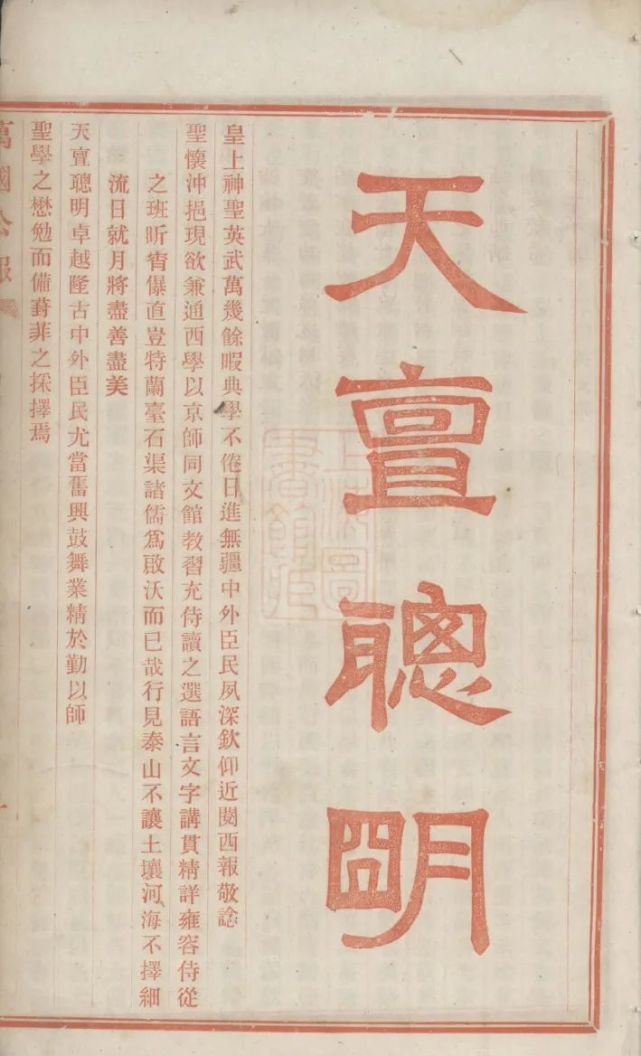 天亶聰明
皇上神聖英武萬幾餘暇典學不倦日進無疆中外臣民夙深欽仰近閱西報敬諗
聖懷沖挹現欲兼通西學以京師同文館敎習充侍讀之選語言文字講貫精詳雍容侍從
之班昕宵儤直豈特蘭臺石渠諸儒爲啟沃而已哉行見泰山不讓土壤河海不擇細
流日就月將盡善盡美
天亶聰明卓越隆古中外臣民尤當奮興鼓舞業精於勤以師
聖學之懋勉而備葑菲之採擇焉
萬國公報
一